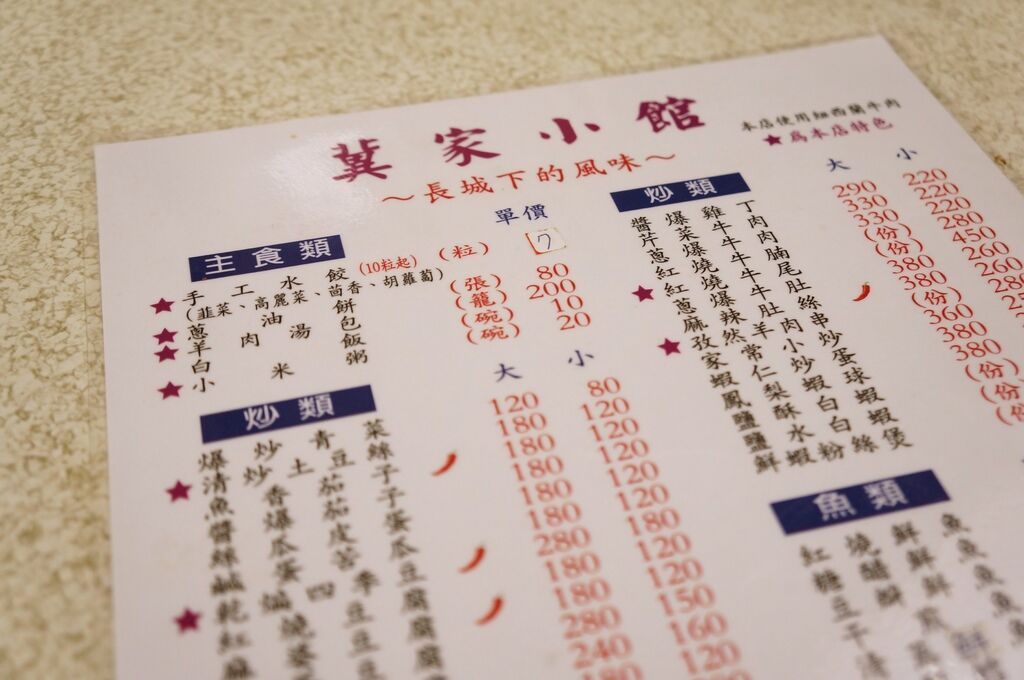 冀家小館
～長城下的風味～
本店使用紐西蘭牛肉
★為本店特色
單價
主食類
★手工水餃(10粒起) (粒) 7
(韭菜、高麗菜、茴香、胡蘿蔔)
★蔥油餅 (張) 80
★羊肉湯包 (籠) 200
白米飯 (碗) 10
★小米粥 (碗) 20
炒類 大 小
爆炒青菜 120 80
★清炒土豆絲 180 120
魚香茄子 180 120
醬爆茄子 180 120
絲瓜皮蛋 180 120
鹹蛋苦瓜 180 120
★乾煸四季豆 280 180
紅燒豆腐 180 120
麻婆豆腐 180 120
280 150
240 160
180 120
炒類 大 小
醬爆雞丁 290 220
芹菜牛肉 330 220
蔥爆牛肉 330 220
紅燒牛腩 (份) 280
★紅燒牛尾 (份) 450
蔥爆牛肚 380 260
麻辣肚絲 380 260
★孜然羊肉串 (份) 280
家常小炒 360
蝦仁炒蛋 380
鳳梨蝦球 380
鹽酥白蝦 (份)
鹽水白蝦 (份)
鮮蝦粉絲煲 (份)
魚類
紅燒鮮魚
糖醋鮮魚
豆瓣鮮魚
干煎
清蒸